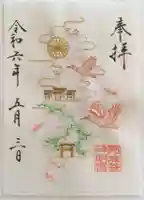 奉拝
令和六年 五月 三日